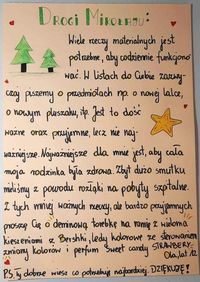 Drogi Mikołaju:
Wiele rzeczy materialnych jest
potrzebne, aby codziennie funkcjono
wać. W listach do Ciebie zazwy-
czaj piszemy o przedmiotach np. o nowej lalce,
o nowym pluszaku, itp. Jest to dość
ważne oraz przyjemne, lecz nie naj-
ważniejsze. Najważniejsze dla mnie jest, aby cała
moja rodzinka była zdrowa. Zbyt dużo smutku
mieliśmy z powodu rozłąki na pobyty szpitalne.
Z tych mniej ważnych rzeczy, ale bardzo przyjemnych
proszę Cię o deminową torebkę na ramię z wieloma
kieszeniami z Bershki, ledy kolorowe ze sterowaniem
zmiany kolorów i perfum Sweet candy STRAWBERY.
Ola, lat 12
PS. Ty dobrze wiesz co potrzebuję najbardziej. DZIĘKUJĘ!